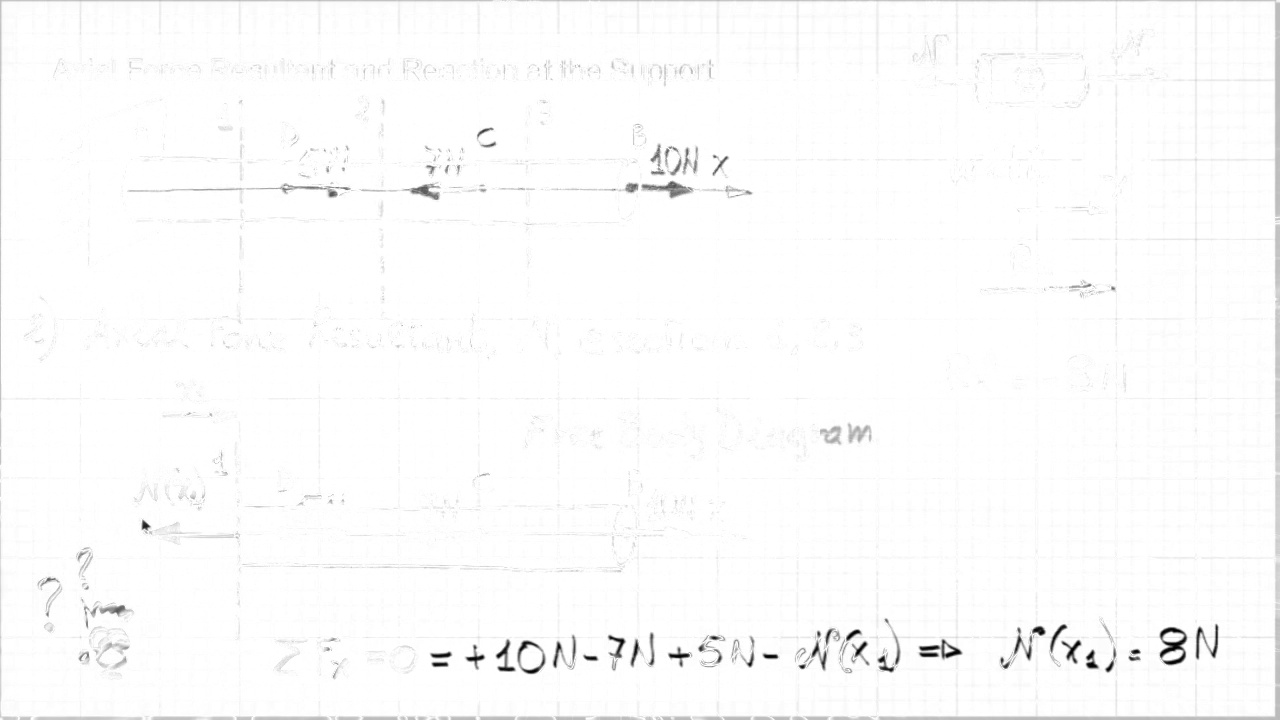 Axial Force Resultant and Reaction at the Support
N N
1 2 3
D 5N 7N C B 10N x
2) Axial Force Resultant, N, @ sections 1, 2, 3
= - 8N
x₁
Free Body Diagram
N(x₁) 1 D C
? ?
ΣFx = 0 = +10N-7N+5N-N(x₁) => N(x₁) = 8N